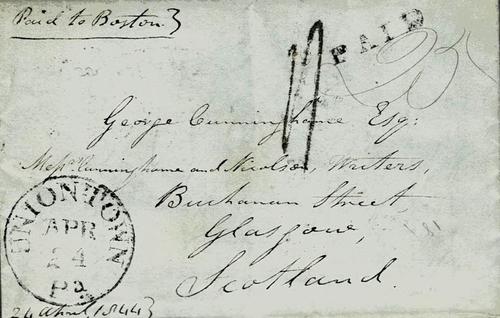 Paid to Boston
PAID
George Cunninghame Esq:
Messrs Cunninghame and Nicolson, Writers,
Buchanan Street,
Glasgow,
Scotland.
UNIONTOWN
APR
24
Pa
24 April 1844